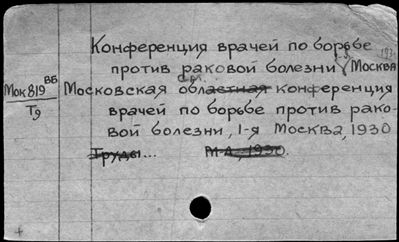 Конференция врачей по борьбе
против раковой болезни Москва
Мок 819 ВБ
Т9
Московская областная конференция
врачей по борьбе против рако-
вой болезни, 1-я Москва, 1930
Труды... М-Л, 1930.